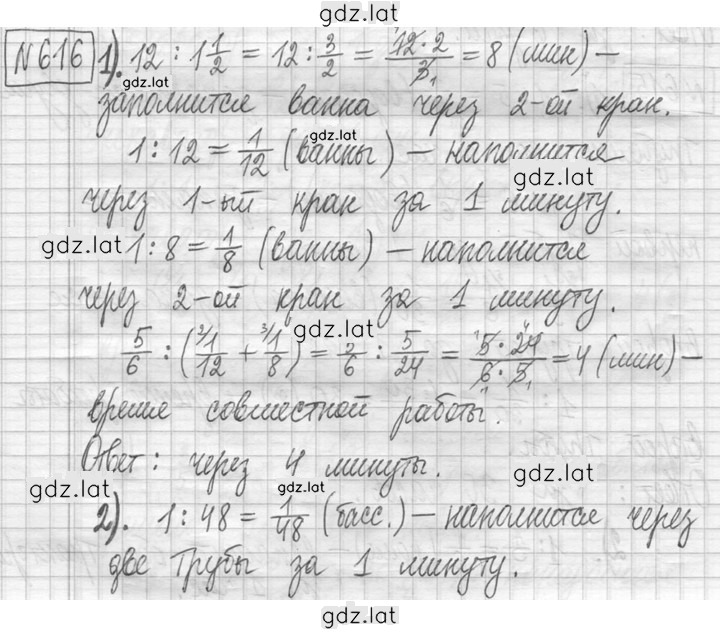 gdz.lat
№ 616 1). 12 : 1 1/2 = 12 : 3/2 = 12·2/3 = 8 (мин) –
gdz.lat
заполнится ванна через 2-ой кран.
gdz.lat
1 : 12 = 1/12 (ванны) – наполнится
gdz.lat
через 1-ый кран за 1 минуту.
gdz.lat 1 : 8 = 1/8 (ванны) – наполнится
через 2-ой кран за 1 минуту.
gdz.lat
5/6 : (²⁾1/12 + ³⁾1/8) = 5/6 : 5/24 = 5·24/6·5 = 4 (мин) –
время совместной работы.
Ответ: через 4 минуты.
gdz.lat gdz.lat gdz.lat
2). 1 : 48 = 1/48 (басс.) – наполнится через
две трубы за 1 минуту.
gdz.lat